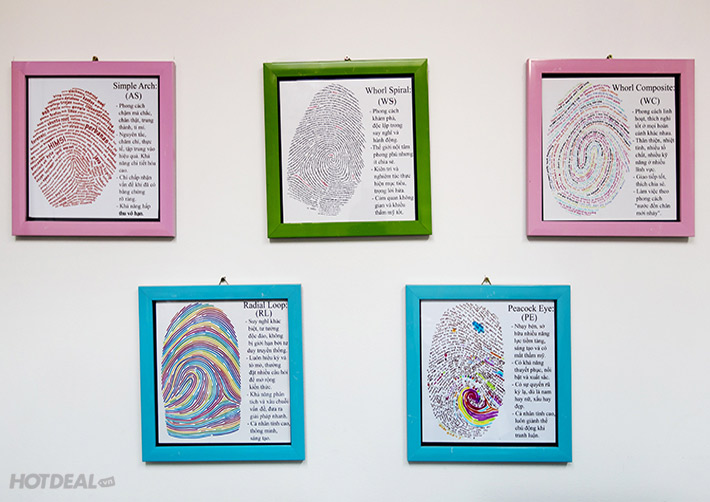 Simple Arch:
(AS)
- Phong cách
chậm mà chắc,
chân thật, trung
thành, tỉ mỉ.
Nguyên tắc,
chăm chỉ, thực
tế, tập trung vào
hiệu quả. Khả
năng chi tiết hóa
cao.
- Chỉ chấp nhận
vấn đề khi đã có
bằng chứng
rõ ràng.
- Khả năng hấp
thu vô hạn.
Whorl Spiral:
(WS)
- Phong cách
khám phá,
độc lập trong
suy nghĩ và
hành động.
- Thế giới nội tâm
phong phú nhưng
ít chia sẻ.
- Kiên trì và
nghiêm túc thực
hiện mục tiêu,
trọng lời hứa.
- Cảm quan không
gian và khiếu
thẩm mỹ tốt.
Whorl Composite:
(WC)
- Phong cách linh
hoạt, thích nghi
tốt ở mọi hoàn
cảnh khác nhau.
- Thân thiện, nhiệt
tình, nhiều tố
chất, nhiều kỹ
năng ở nhiều
lĩnh vực.
- Giao tiếp tốt,
thích chia sẻ.
- Làm việc theo
phong cách
"nước đến chân
mới nhảy".
Radial Loop:
(RL)
- Suy nghĩ khác
biệt, tư tưởng
độc đáo, không
bị giới hạn bởi tư
duy truyền thống.
- Luôn hiếu kỳ và
tò mò, thường
đặt nhiều câu hỏi
để mở rộng
kiến thức.
- Khả năng phân
tích và xâu chuỗi
vấn đề, đưa ra
giải pháp nhanh.
- Cá nhân tính cao,
thông minh,
sáng tạo.
Peacock Eye:
(PE)
- Nhạy bén, sở
hữu nhiều năng
lực tiềm tàng,
sáng tạo và có
mắt thẩm mỹ.
- Có khả năng
thuyết phục, nổi
bật và xuất sắc.
- Có sự quyến rũ
kỳ lạ, dù là nam
hay nữ, xấu hay
đẹp.
- Cá nhân tính cao,
luôn giành thế
chủ động khi
tranh luận.
HOTDEAL.vn